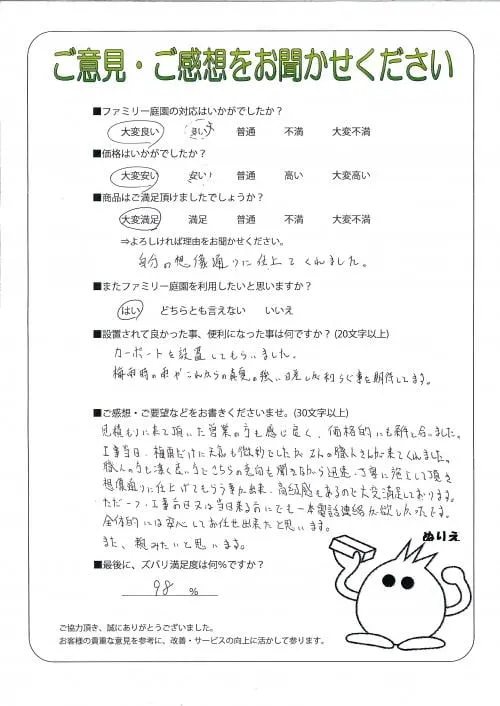 ご意見・ご感想をお聞かせください
■ファミリー庭園の対応はいかがでしたか？
大変良い 良い 普通 不満 大変不満
■価格はいかがでしたか？
大変安い 安い 普通 高い 大変高い
■商品はご満足頂けましたでしょうか？
大変満足 満足 普通 不満 大変不満
⇒よろしければ理由をお聞かせください。
自分の想像通りに仕上てくれました。
■またファミリー庭園を利用したいと思いますか？
はい どちらとも言えない いいえ
■設置されて良かった事、便利になった事は何ですか？(20文字以上)
カーポートを設置してもらいました。
梅雨時の雨やこれからの真夏の強い日差し
を期待してます。
■ご感想・ご要望などをお書きくださいませ。(30文字以上)
見積もりに来て頂いた営業の方も感じ良く、価格的にも
工事当日、梅雨だけに天気も微妙でしたが、2人の職人さんが来てくれました。
職人の方も凄く良い方でこちらの意向も聞きながら迅速、丁寧に施工して頂き
想像通りに仕上げてもらう事が出来、高級感もあるので大変満足しております。
ただ一つ、工事前日又は当日来る前にでも一本電話連絡が欲しかったです。
全体的には安心してお任せ出来たと思います。
また、頼みたいと思います。
ぬりえ
■最後に、ズバリ満足度は何%ですか？
98 %
ご協力頂き、誠にありがとうございました。
お客様の貴重な意見を参考に、改善・サービスの向上に活かして参ります。